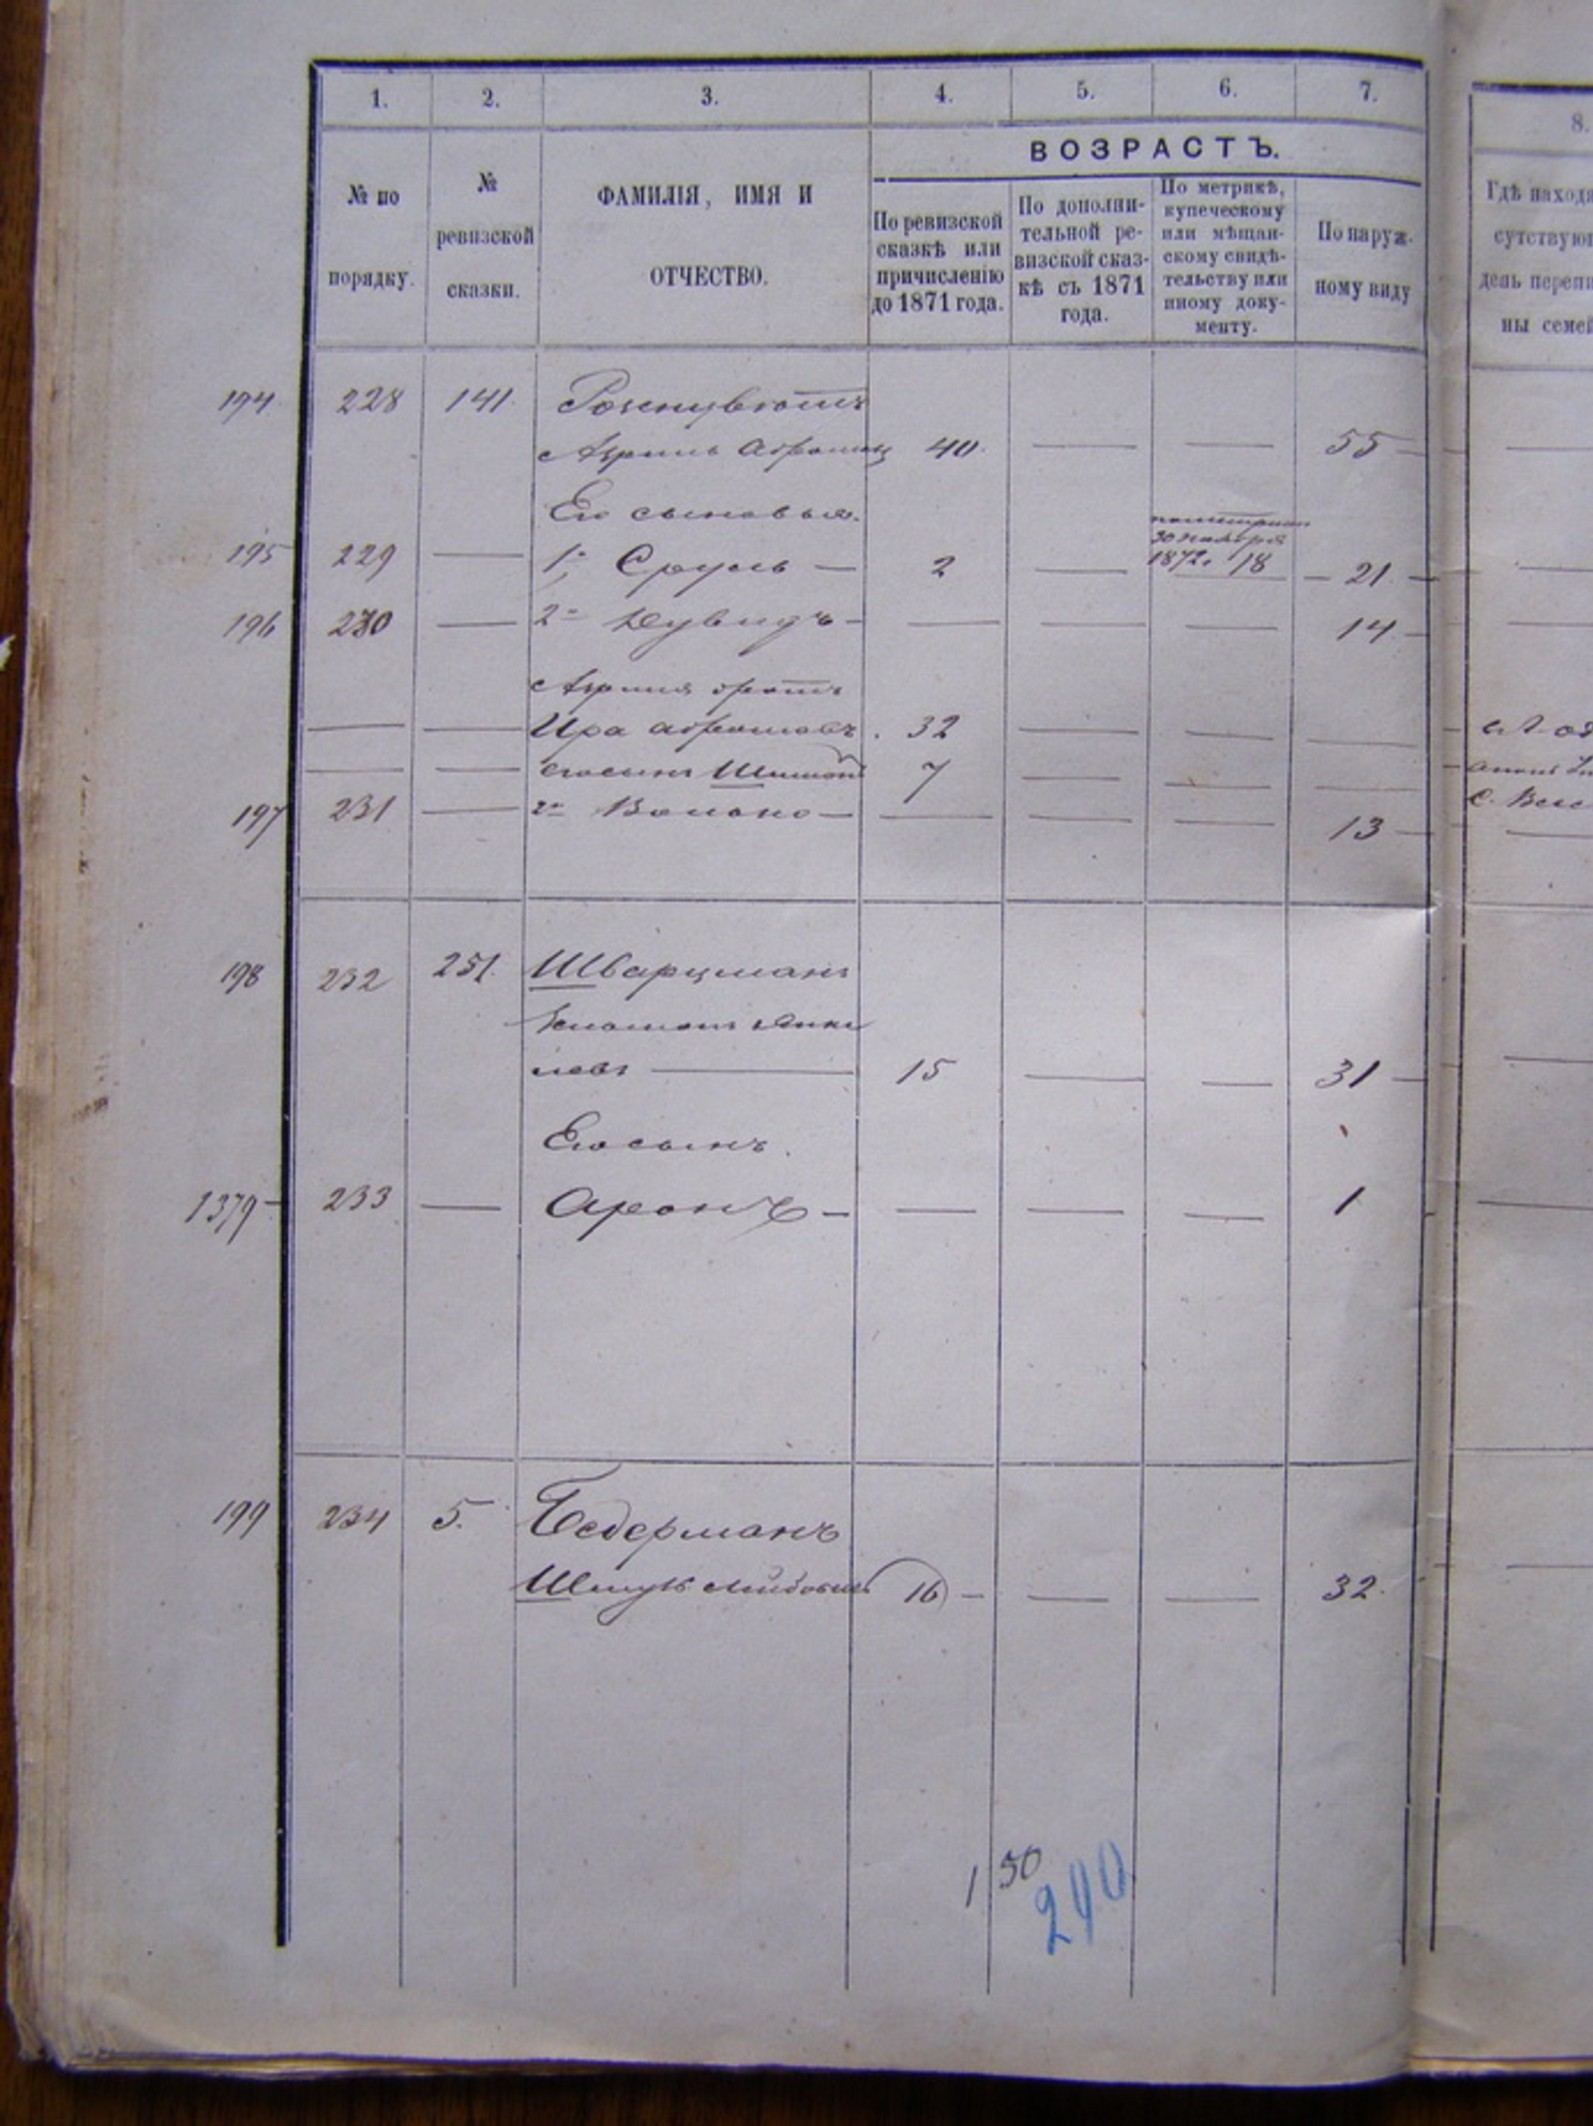 1. 2. 3. 4. 5. 6. 7. 8.
ВОЗРАСТЪ.
№ по порядку.
№ ревизской сказки.
ФАМИЛІЯ, ИМЯ И ОТЧЕСТВО.
По ревизской сказкѣ или причисленію до 1871 года.
По дополни-тельной ре-визской сказ-кѣ съ 1871 года.
По метрикѣ, купеческому или мѣщан-скому свидѣ-тельству или иному доку-менту.
По наруж-ному виду
Гдѣ находя
сутствую
день перепи
ны семей
194 228 141.
40. 55
Его сыновья.
195 229 1й Сруль 2 1872. 18 21
196 230 2й Дувидъ 14
братъ
Ира Абрамовъ. 32
его сынъ Шимонъ 7
197 231 2й Волько 13
198 232 251. Шварцманъ
левъ 15 31
Его сынъ.
1379 233 Аронъ 1
199 234 5. Бедерманъ
Шмуль Лейбовъ 16 32
1 50
290